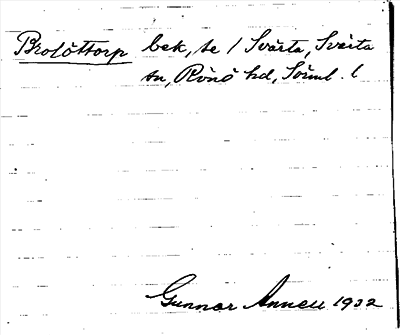 Brolöttorp bek, se / Svärta, Svärta
sn, Rönö hd, Söml. l
Gunnar Annell 1932